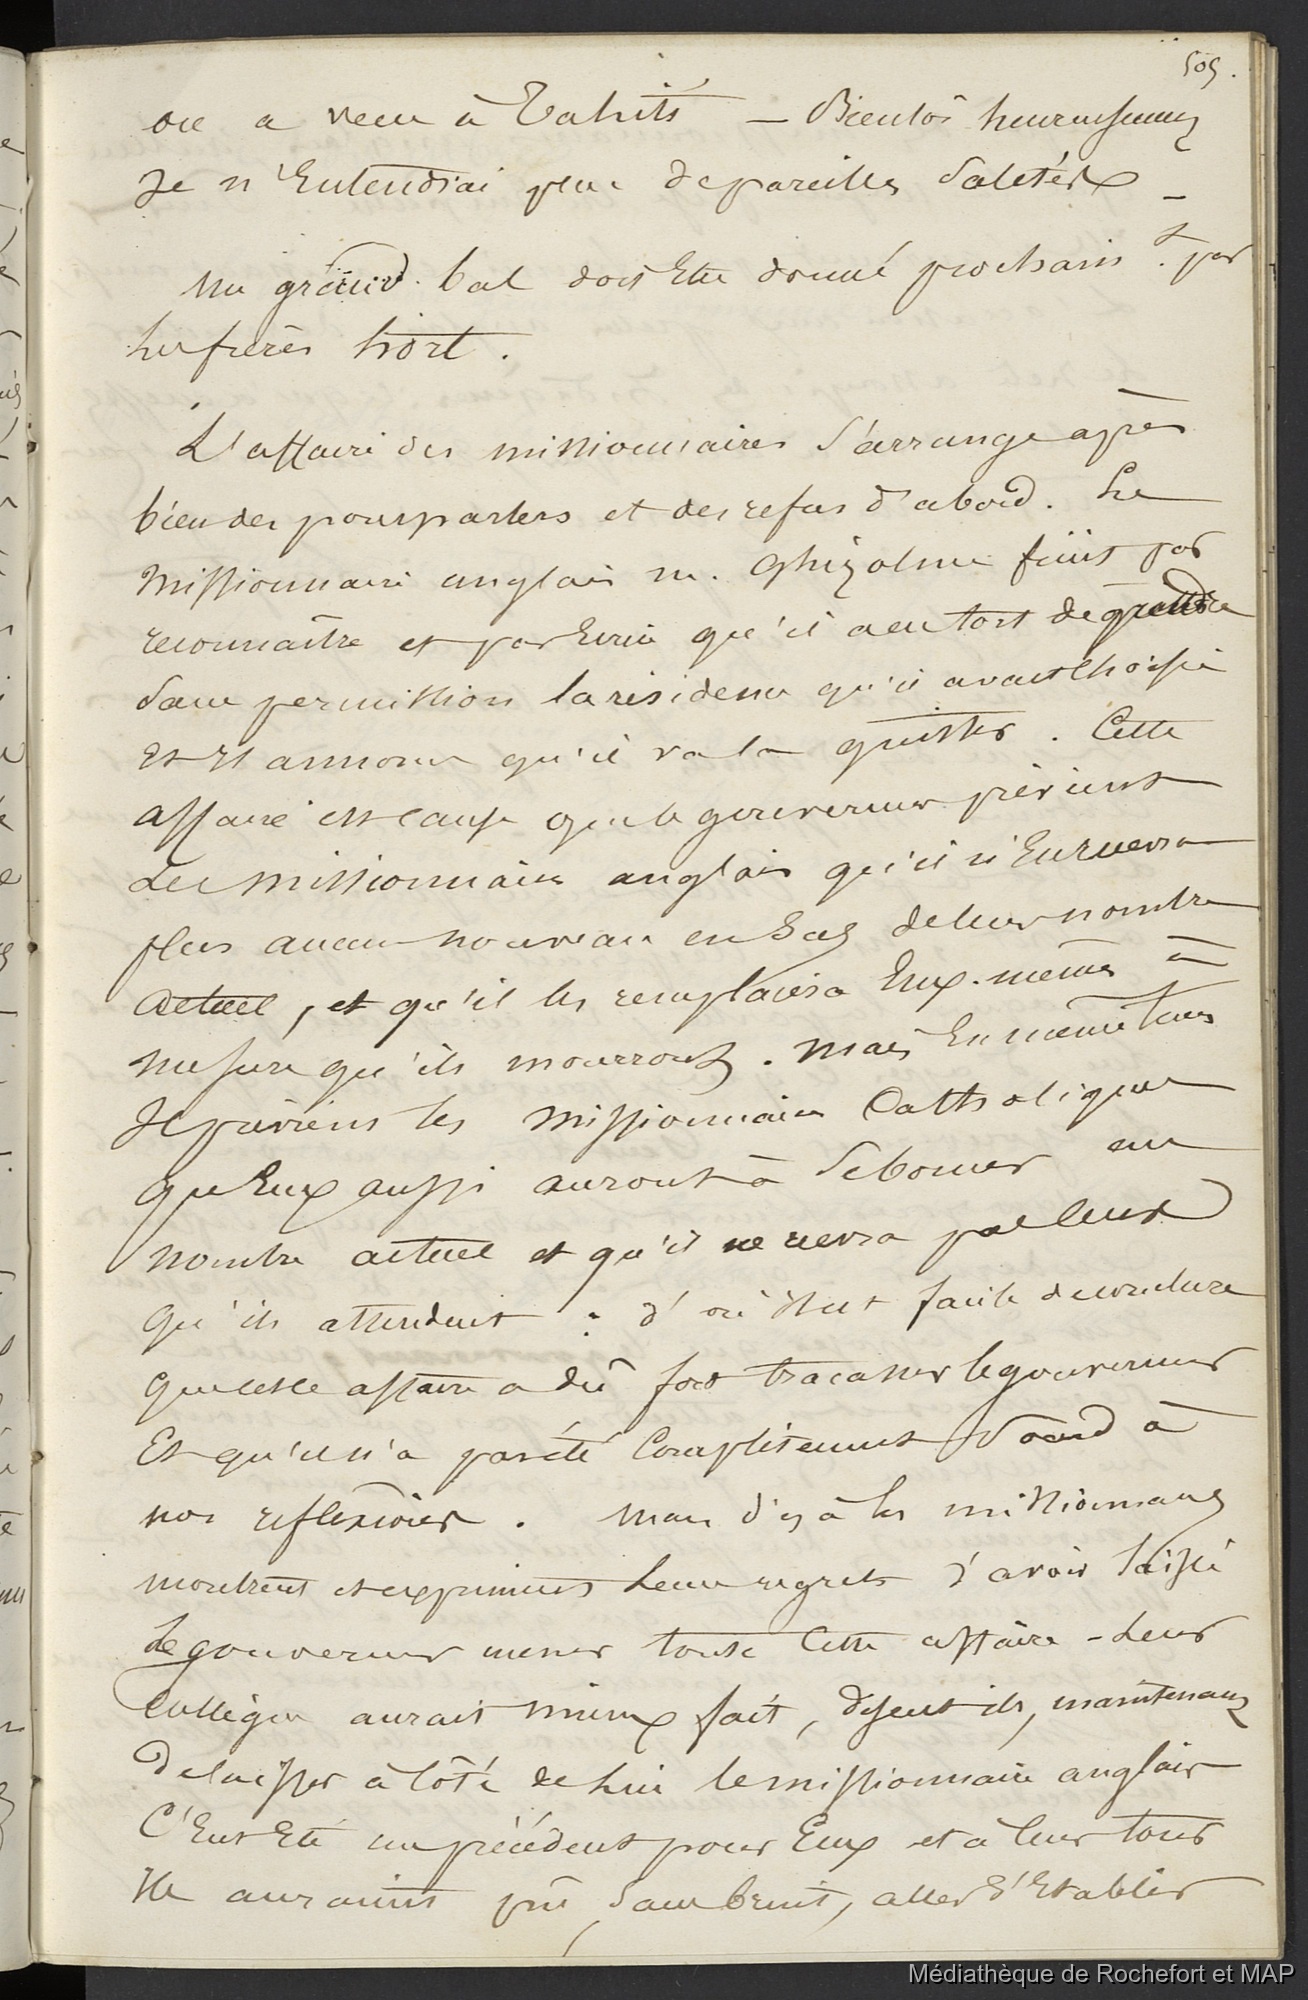 505.
on a vécu à Tahiti — Bientôt heureusement
Je n'Entendrai plus de pareilles Saletés —
un grand bal doit Etre donné prochaint. par
les frères hort.
L'affaire des missionnaires s'arrange après
bien des pourparlers et des refus d'abord. Le
Missionnaire anglais m. finit par
reconnaître et par Ecrire qu'il a eu tort de prendre
Sans permission la résidence qu'il avait choisie
Et Il annonce qu'il va la quitter. Cette
affaire est cause que le gouverneur prévient
Les missionnaires anglais qu'il n'En recevra
plus aucun nouveau en Sus de leur nombre
actuel, et qu'il les remplacera Eux-mêmes à
mesure qu'ils mourront. Mais En même tems
Il prévient les missionnaires Catholiques
qu'Eux aussi auront à Se borner au
nombre actuel et qu'il ne recevra pas ceux
qu'ils attendent : d'où il est facile de conclure
que cette affaire a dû fort tracasser le gouverneur
Et qu'il n'a pas été Complètement Sourd à
nos reflexions. Mais déjà les missionnaires
montrent et expriment Leurs regrets d'avoir laissé
Le gouverneur mener toute Cette affaire - Leur
Collègue aurait mieux fait, disent ils, maintenant
De laisser à Côté de Lui le missionnaire anglais
C'Eut Eté un précédent pour Eux et à leur tour
Ils auraient pu, Sans bruit, aller s'Etablir
Médiathèque de Rochefort et MAP